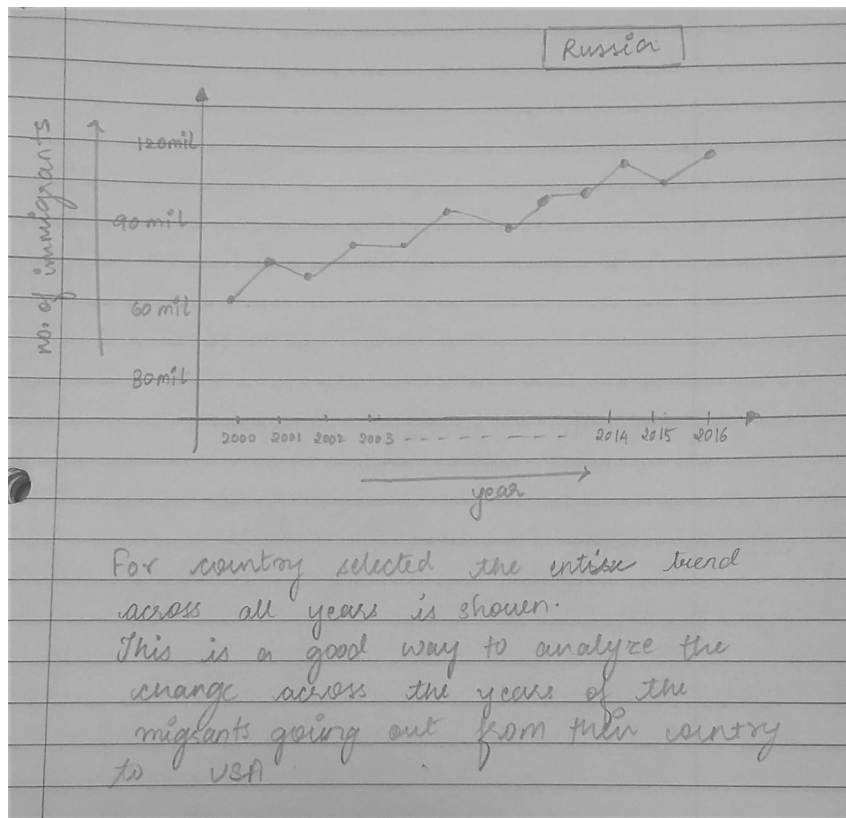 Russia
no. of immigrants
120mil
90mil
60mil
30mil
2000 2001 2002 2003 - - - - - - - - - - 2014 2015 2016
year
For country selected the entire trend
across all years is shown.
This is a good way to analyze the
change across the years of the
migrants going out from their country
to USA